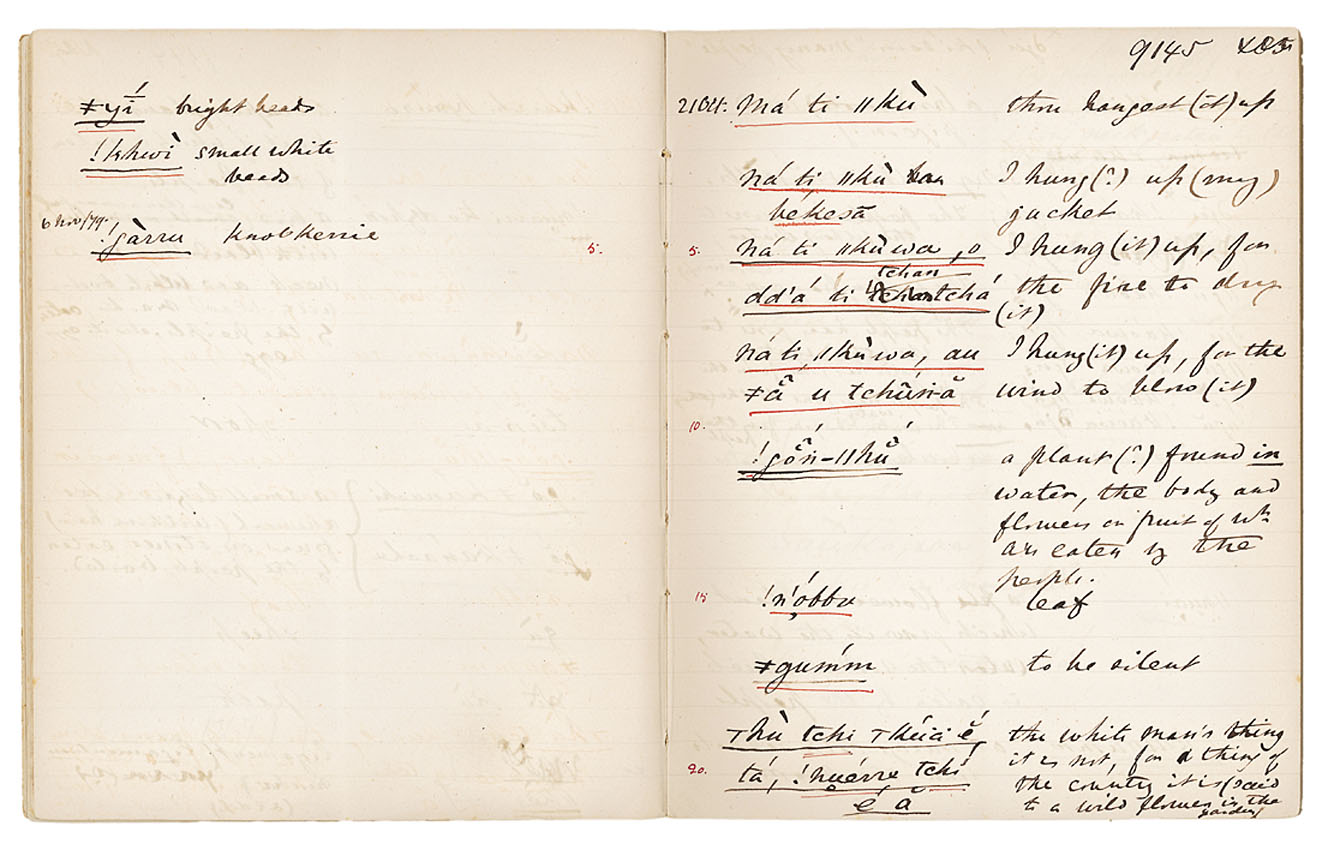 ǂyí bright beads
!khwì small white
beads
6 Nov/79.
!gàrru Knobkerrie
5.
9145
21 Oct. Má ti ǁkù thou hangest (it) up
ná ti ǁkù I hung (?) up (my)
békesa jacket
5. ná ti ǁkùwa, o I hung (it) up, for
tchan
dd'á ti tchá the fire to dry
(it)
ná ti, ǁkùwa, au I hung (it) up, for the
ǂã́ u tchúṅ-ă wind to blow (it)
10.
!gṍṅ-ǁhṹ a plant (?) found in
water, the body and
flowers or fruit of wh
are eaten by the
people.
15 !ṅóbbo leaf
ǂgumḿ to be silent
Thù tchi Tkúiă é, the white man's thing
20. tá, !nuérre tchí it is not, for a thing of
é á the country it is (said
to a wild flower in the
garden)